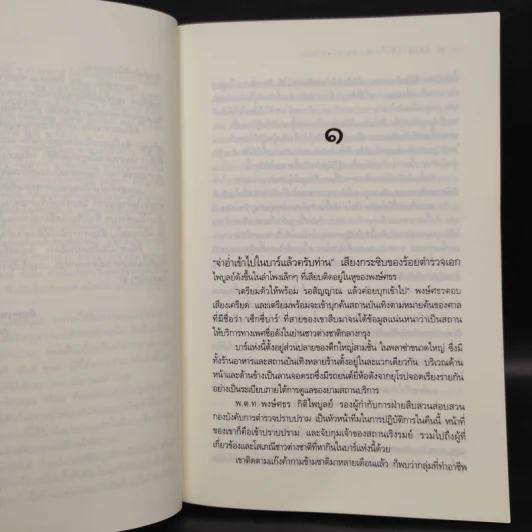 ๑
"จ่าอ่ำเข้าไปในบาร์แล้วครับท่าน" เสียงกระซิบของร้อยตำรวจเอก
ไพบูลย์ดังขึ้นในลำโพงเล็กๆ ที่เสียบติดอยู่ในหูของพงษ์ศธร
"เตรียมตัวให้พร้อม รอสัญญาณ แล้วค่อยบุกเข้าไป" พงษ์ศธรตอบ
เสียงเครียด และเตรียมพร้อมจะเข้าบุกค้นสถานบันเทิงตามหมายค้นของศาล
ที่มีชื่อว่า 'เซ็กซี่บาร์' ที่สายของเขาสืบมาจนได้ข้อมูลแน่นหนาว่าเป็นสถาน
ให้บริการทางเพศชื่อดังในย่านชาวต่างชาติกลางกรุง
บาร์แห่งนี้ตั้งอยู่ส่วนปลายของตึกใหญ่สามชั้น ในพลาซ่าขนาดใหญ่ ซึ่งมี
ทั้งร้านอาหารและสถานบันเทิงหลายร้านตั้งอยู่ในละแวกเดียวกัน บริเวณด้าน
หน้าและด้านข้างเป็นลานจอดรถซึ่งมีรถยนต์ยี่ห้อดังจากยุโรปจอดเรียงรายกัน
อย่างเป็นระเบียบภายใต้การดูแลของยามสถานบริการ
พ.ต.ท. พงษ์ศธร กิติไพบูลย์ รองผู้กำกับการฝ่ายสืบสวนสอบสวน
กองบังคับการตำรวจปราบปราม เป็นหัวหน้าทีมในการปฏิบัติการในคืนนี้ หน้าที่
ของเขาก็คือเข้าปราบปราม และจับกุมเจ้าของสถานเริงรมย์ รวมไปถึงผู้ที่
เกี่ยวข้องและโสเภณีชาวต่างชาติที่หากินในบาร์แห่งนี้ด้วย
เขาติดตามแก๊งค้ากามข้ามชาติมาหลายเดือนแล้ว ก็พบว่ากลุ่มที่ทำอาชีพ